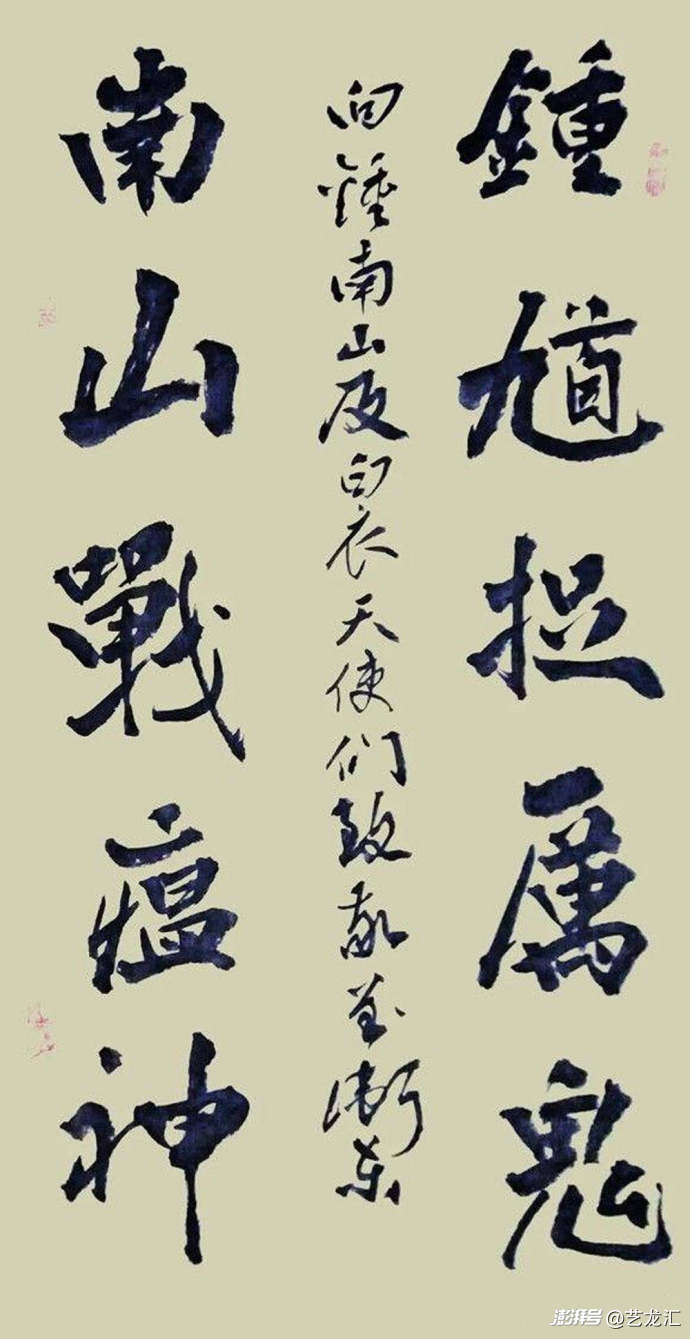 鍾馗捉厲鬼
向鍾南山及白衣天使们致敬
南山戰瘟神
澎湃号@艺龙汇